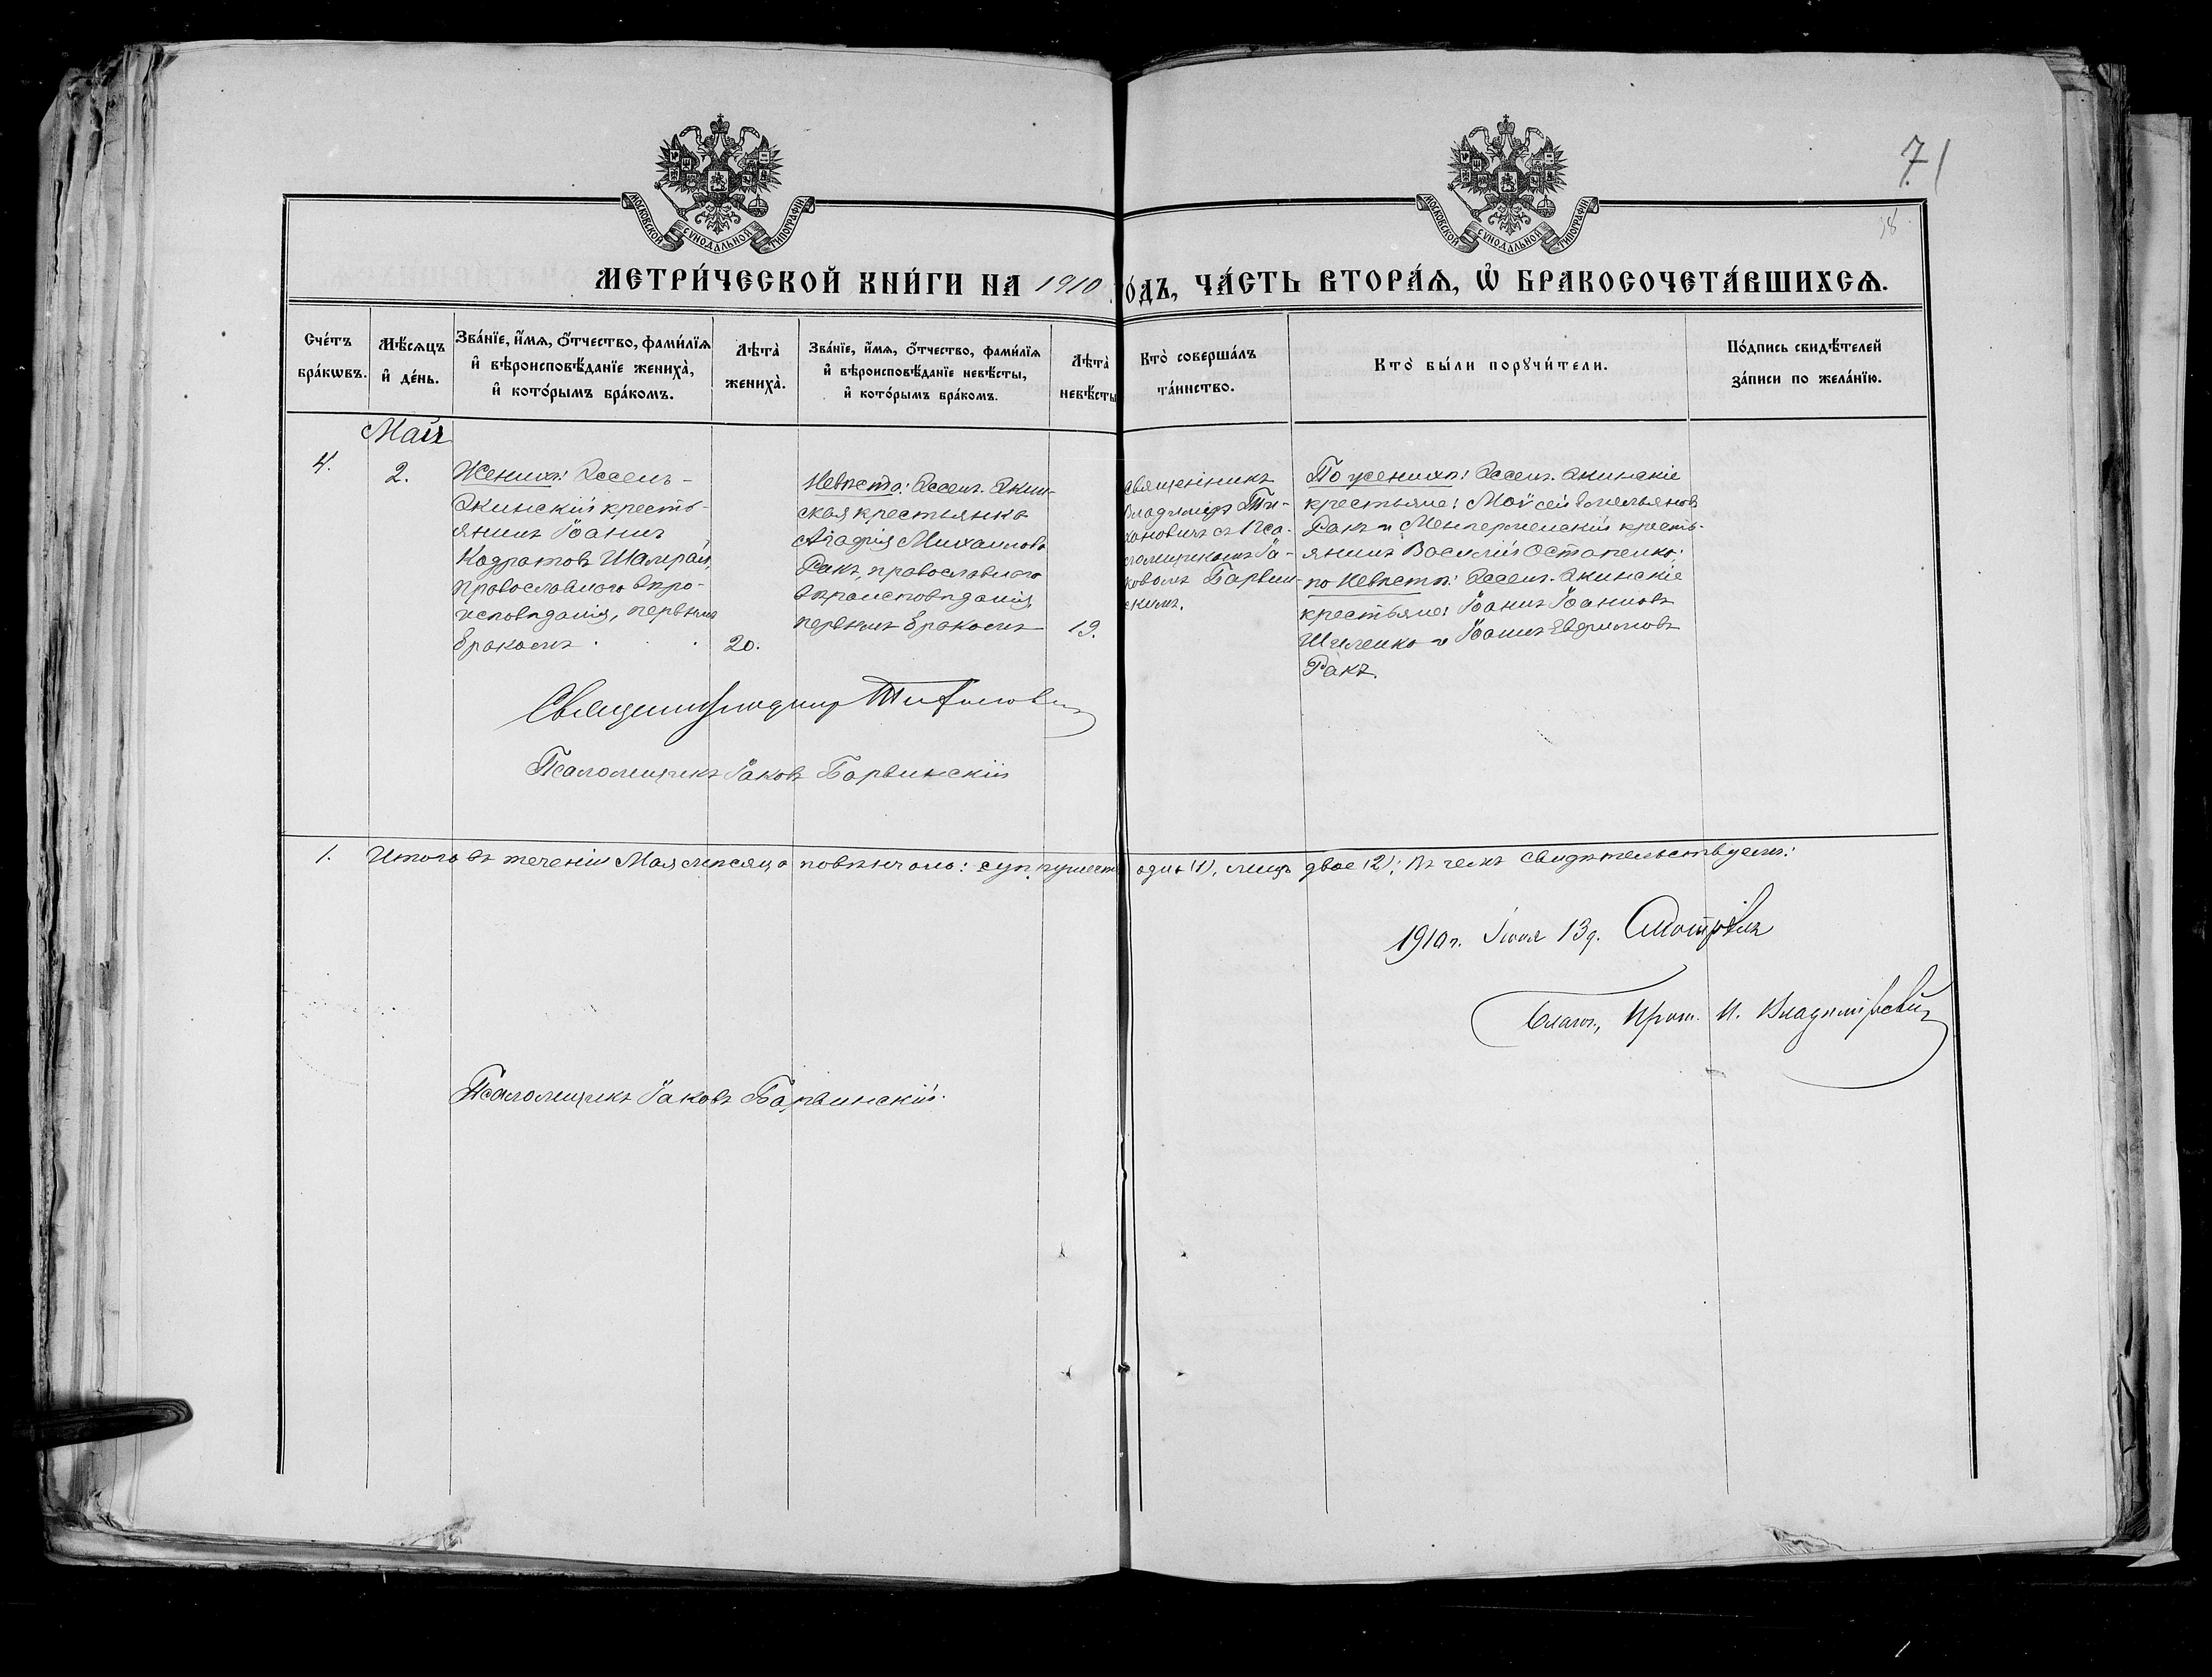 71
38
МОСКОВСКОЙ СУНОДАЛЬНОЙ ТИПОГРАФІИ
МОСКОВСКОЙ СУНОДАЛЬНОЙ ТИПОГРАФІИ
МЕТРИ́ЧЕСКОЙ КНИ́ГИ НА 1910 ГО́ДЪ, ЧА́СТЬ ВТОРА́Ѧ, Ѽ БРАКОСОЧЕТА́ВШИХСѦ.
Сче́тъ бра́кѡвъ.
Мѣ́сѧцъ и҆ де́нь.
Зва́нїе, и҆́мѧ, ѻ҆́тчество, фами́лїѧ и҆ вѣроисповѣ́данїе жениха̀, и҆ кото́рымъ бра́комъ.
Лѣта̀ жениха̀.
Зва́нїе, и҆́мѧ, ѻ҆́тчество, фами́лїѧ и҆ вѣроисповѣ́данїе невѣ́сты, и҆ кото́рымъ бра́комъ.
Лѣта̀ невѣ́сты
Кто̀ соверша́лъ та́инство.
Кто̀ бы́ли порꙋчи́тели.
По́дпись свидѣ́телей за́писи по жела́нїю.
Май
4.
2.
Женихъ:
крестьянинъ Іоаннъ
православного вѣро-
исповѣданія, первымъ
бракомъ
20.
Невѣста:
ская крестьянка
Михаилова
Ракъ, православного
вѣроисповѣданія,
первымъ бракомъ
19.
Священникъ
Владиміръ Ти-
хановичъ съ Пса-
ломщикомъ Іа-
ковомъ Барвин-
скимъ.
По женихѣ:
крестьяне: Моѵсей Емельяновъ
Ракъ и кресть-
янинъ Василій Остапенко;
по невѣстѣ:
крестьяне: Іоаннъ Іоанновъ
и Іоаннъ Ефимовъ
Ракъ.
Священникъ Владиміръ Тихановичъ
Псаломщикъ Іаковъ Барвинскій
1. Итого въ теченіи Мая мѣсяца повѣнчано: супружествъ одно (1), лицъ двое (2); въ чемъ свидѣтельствуемъ:
1910 г. Іюня 13 д. Смотрѣлъ
Благоч., Прот. И. Владимірскій
Псаломщикъ Іаковъ Барвинскій.